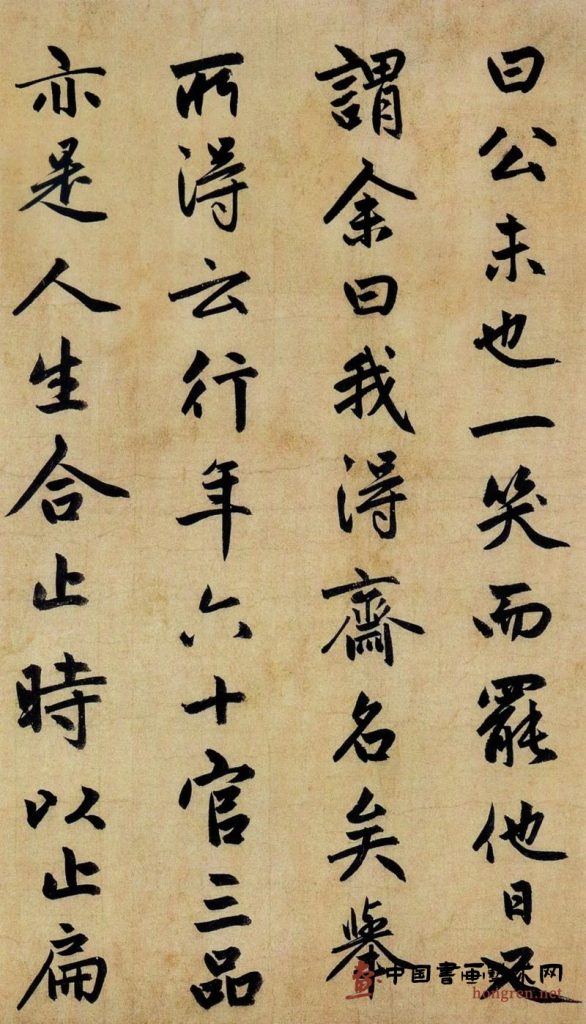 曰公未也一笑而罷他日
謂余曰我得齋名矣舉
所得云行年六十官三品
亦是人生合止時以止扁
中国書画艺术网
hongren.net